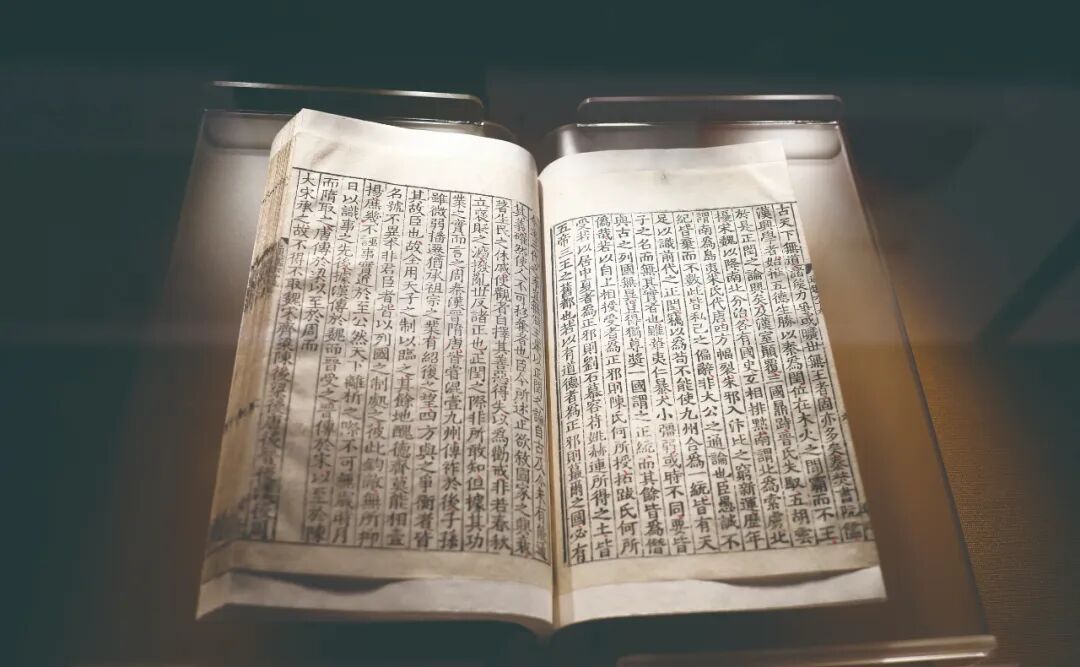 古天下無道諸侯力爭或曠世無王者固亦多矣秦焚書阬儒
漢興學者始推五德生勝以秦為閏位在木火之間霸而不王
於是正閏之論興矣及漢室顛覆三國鼎跱晉氏失馭五胡雲
擾宋魏以降南北分治各有國史互相排黜南謂北為索虜北
謂南為島夷朱氏代唐四方幅裂朱邪入汴比之窮新運歷年
紀皆棄而不數此皆私己之偏辭非大公之通論也臣愚誠不
足以識前代之正閏竊以為苟不能使九州合為一統皆有天
子之名而無其實者也雖華夷仁暴大小強弱或時不同要皆
與古之列國無異豈得獨尊獎一國謂之正統而其餘皆為僭
偽哉若以自上相授受者為正邪則陳氏何所授拓跋氏何所
受若以居中夏者為正邪則劉石慕容苻姚赫連所得之土皆
五帝三王之舊都也若以有道德者為正邪則蕞爾之國必有
以正閏之論自古及今未有能通
其義確然使人不可移奪者也臣今所述止欲敘國家之興衰
著生民之休戚使觀者自擇其善惡得失以為勸戒非若春秋
立褒貶之法撥亂世反諸正也正閏之際非所敢知但據其功
業之實而言之周秦漢晉隋唐皆嘗混壹九州傳祚於後子孫
雖微弱播遷猶承祖宗之業有紹復之望四方與之爭衡者皆
其故臣也故全用天子之制以臨之其餘地醜德齊莫能相壹
名號不異本非君臣者皆以列國之制處之彼此鈞敵無所抑
揚庶幾不誣事實近於至公然天下離析之際不可無歲時月
日以識事之先後據漢傳於魏而晉受之晉傳於宋以至於陳
而隋取之唐傳於梁以至於周而
大宋承之故不得不取魏宋齊梁陳後梁後唐後晉後漢後周